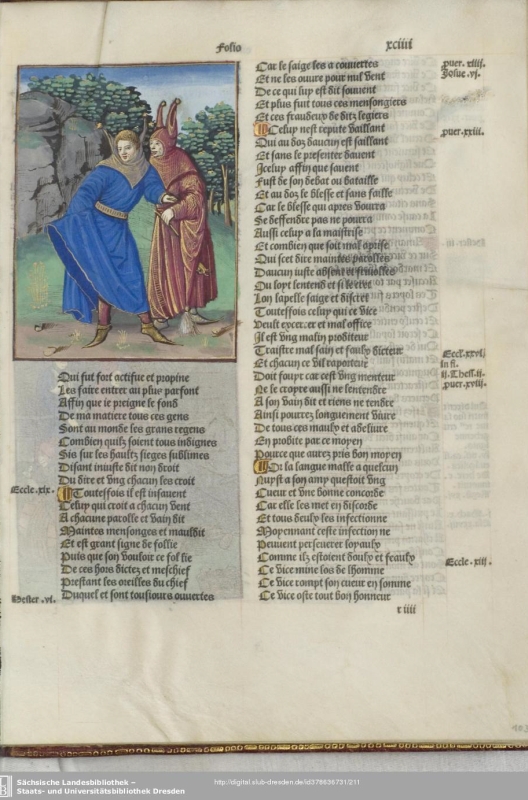 Folio
xciiii
Qui fut fort actifue et propine
Les faire entrer au plus parfont
Affin que ie preigne le fond
De ma matiere tous ces gens
Sont au monde les grans regens
Combien quilz soient tous indignes
Sis sur les haultz sieges sublimes
Disant iniuste dit non droit
Du dire et vng chacun les croit
Eccle.xix.
Toutesfois il est insauent
Celuy qui croit a chacun vent
A chacune parolle et vain dit
Maintes mensonges et mauldit
Et est grant signe de follie
Puis que son vouloir ce fol lie
De ces hors dictez et meschief
Prestant les oreilles du chief
Hester.vi.
Duquel et sont tousiours ouuertes
Car le saige les a couuertes
puer.xiiii.
Et ne les ouure pour nul vent
Josue.vi.
De ce qui luy est dit souuent
Et plus fuit tous ces mensongiers
Et ces fraudeux de ditz legiers
Celuy nest repute vaillant
puer.xxiii.
Qui au doz daucun est saillant
Et sans le presenter dauent
Jceluy affin que sauent
Fust de son debat ou bataille
Et au dos le blesse et sans faille
Car le blesse qui apres dourra
Se deffendre pas ne pourra
Aussi celuy a la maistrise
Et combien que soit mal aprise
Qui scet dire maintes parolles
Daucun iuste absent et friuolles
Ou loyt lentend et si le
Lon lapelle saige et discret
Toutesfois celuy qui ce vice
Veult excercer et mal office
Jl est vng malin proditeur
Traistre mal sain et faulx dicteur
Eccl.xxvi.
Et chacun ce vil raporteur
in fi.
Doit fouyr car cest vng menteur
ii.Thess.ii.
Ne le croyre aussi ne lentendre
puer.xviii.
A son vain dit et riens ne tendre
Ainsi pourrez longuement viure
De tous ces maulx et adeliure
En probite par ce moyen
Pource que aurez pris bon moyen
Or la langue malle a quelcun
Nuyst a son amy quessoit vng
Cueur et vne bonne concorde
Car elle les met en discorde
Et tous deulx les infectionne
Moyennant ceste infection ne
Peuuent perseuerer loyaulx
Comme ilz estoient doulx et feaulx
Ce vice mine los de lhomme
Eccle.xiii.
Ce vice rompt son cueur en somme
Ce vice oste tout bon honneur
r iiii
Sächsische Landesbibliothek –
Staats- und Universitätsbibliothek Dresden
http://digital.slub-dresden.de/id378636731/211